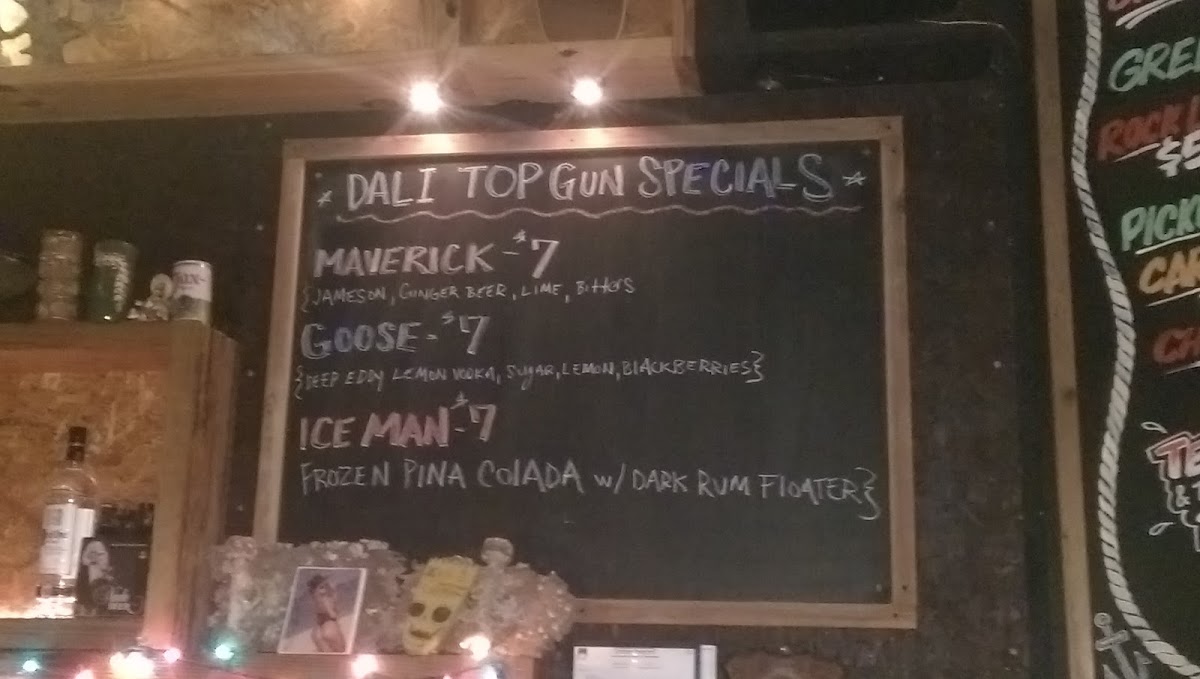 * DALI TOP GUN SPECIALS *
MAVERICK - $7
{JAMESON, GINGER BEER, LIME, BITTERS
GOOSE - $7
{DEEP EDDY LEMON VODKA, SUGAR, LEMON, BLACKBERRIES}
ICE MAN - $7
FROZEN PINA COLADA W/ DARK RUM FLOATER}
GRE
ROCK
$5
PICK
CA
CH
TE
&